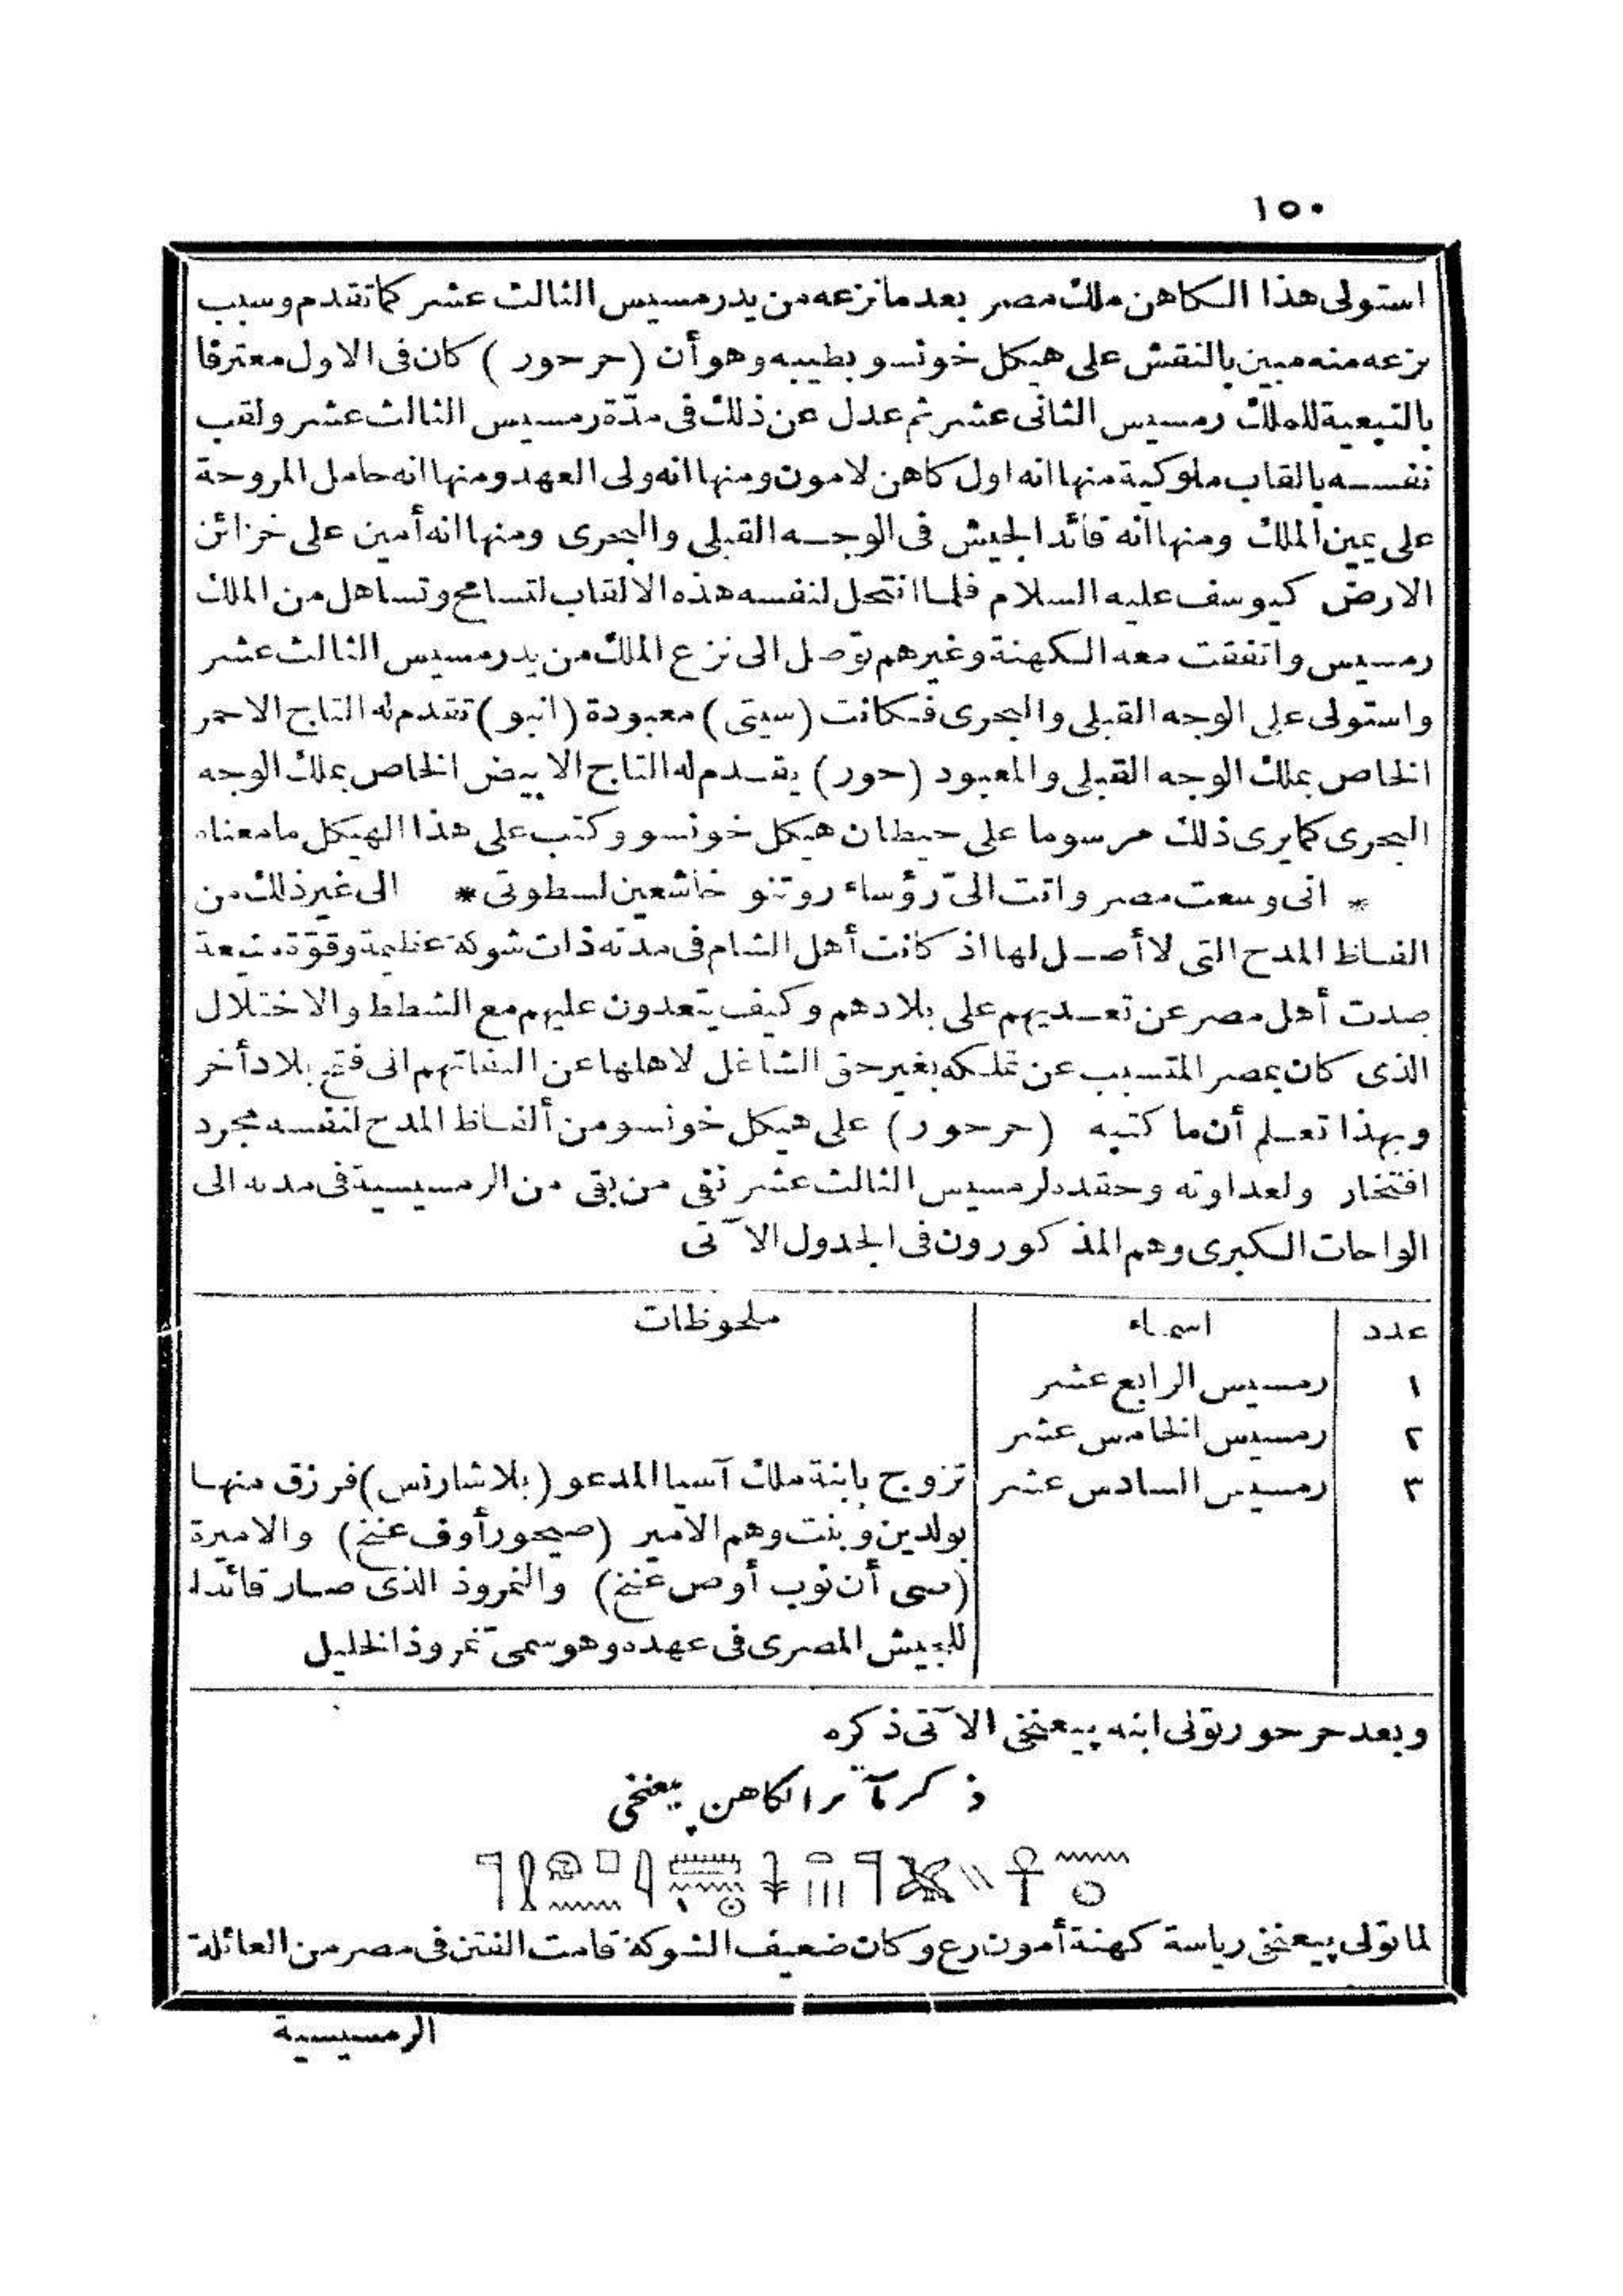 ١٥٠
استولى هذا الكاهن ملك مصر بعد ما نزعه من يد رمسيس الثالث عشر كما تقدم وسبب
نزعه منه مبين بالنقش على هيكل خونسو بطيبه وهو أن (حرحور) كان فى الاول معترفا
بالتبعية للملك رمسيس الثانى عشر ثم عدل عن ذلك فى مدّة رمسيس الثالث عشر ولقب
نفسه بالقاب ملوكية منها انه اول كاهن لامون ومنها انه ولى العهد ومنها انه حامل المروحة
على يمين الملك ومنها انه قائد الجيش فى الوجه القبلى والبحرى ومنها انه أمين على خزائن
الارض كيوسف عليه السلام فلما انتحل لنفسه هذه الالقاب لتسامح وتساهل من الملك
رمسيس واتفقت معه الكهنة وغيرهم توصل الى نزع الملك من يد رمسيس الثالث عشر
واستولى على الوجه القبلى والبحرى فكانت (سيتى) معبودة (انبو) تقدم له التاج الاحمر
الخاص بملك الوجه القبلى والمعبود (حور) يقدم له التاج الابيض الخاص بملك الوجه
البحرى كما يرى ذلك مرسوما على حيطان هيكل خونسو وكتب على هذا الهيكل ما معناه
* انى وسعت مصر واتت الىّ رؤساء روتنو خاشعين لسطوتى * الى غير ذلك من
الفاظ المدح التى لا أصل لها اذ كانت أهل الشام فى مدته ذات شوكة عظيمة وقوّة منيعة
صدت أهل مصر عن تعديهم على بلادهم وكيف يتعدون عليهم مع الشطط والاختلال
الذى كان بمصر المتسبب عن تملكه بغير حق الشاغل لاهلها عن التفاتهم الى فتح بلاد أخر
وبهذا تعلم أن ما كتبه (حرحور) على هيكل خونسو من ألفاظ المدح لنفسه مجرد
افتخار ولعداوته وحقده لرمسيس الثالث عشر نفى من بقى من الرمسيسية فى مدته الى
الواحات الكبرى وهم المذكورون فى الجدول الآتى
عدد اسماء ملحوظات
١ رمسيس الرابع عشر
٢ رمسيس الخامس عشر
٣ رمسيس السادس عشر تزوج بابنة ملك آسيا المدعو (بلاشارنس) فرزق منها
بولدين وبنت وهم الامير (صيحور أوف عنخ) والاميرة
(سى أن نوب أوص عنخ) والنمروذ الذى صار قائدا
للجيش المصرى فى عهده وهو سمىّ نمروذ الخليل
وبعد حرحور تولى ابنه پيعنخى الآتى ذكره
ذكر مآثر الكاهن پيعنخى
لما تولى پيعنخى رياسة كهنة أمون رع وكان ضعيف الشوكة قامت الفتن فى مصر من العائلة
الرمسيسية